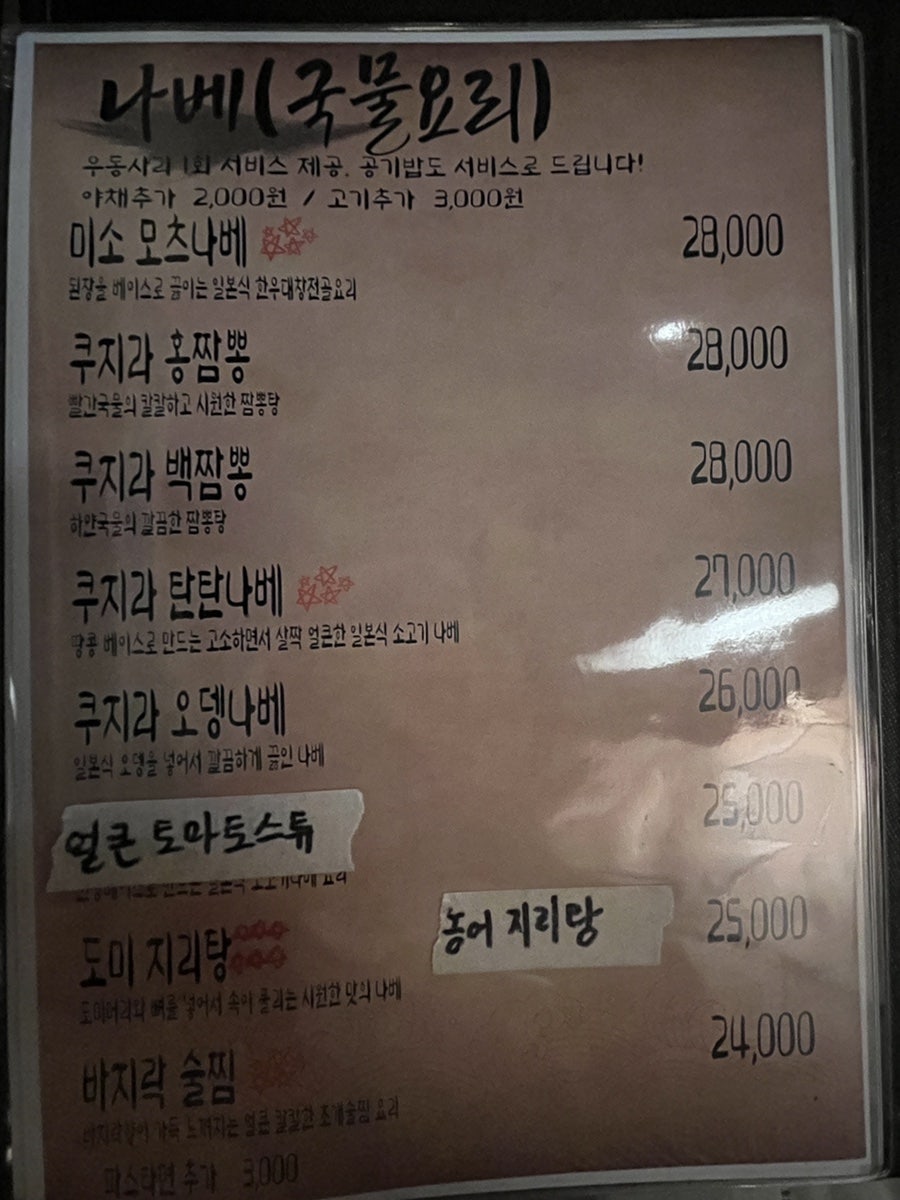 나베(국물요리)
우동사리 1회 서비스 제공. 공기밥도 서비스로 드립니다!
야채추가 2,000원 / 고기추가 3,000원
미소 모츠나베 28,000
된장을 베이스로 끓이는 일본식 한우대창전골요리
쿠지라 홍짬뽕 28,000
빨간국물의 칼칼하고 시원한 짬뽕탕
쿠지라 백짬뽕 28,000
하얀국물의 깔끔한 짬뽕탕
쿠지라 탄탄나베 27,000
땅콩 베이스로 만드는 고소하면서 살짝 얼큰한 일본식 소고기 나베
쿠지라 오뎅나베 26,000
일본식 오뎅을 넣어서 깔끔하게 끓인 나베
얼큰 토마토스튜 25,000
요리
도미 지리탕 농어 지리탕 25,000
도미머리와 뼈를 넣어서 속이 풀리는 시원한 맛의 나베
바지락 술찜 24,000
가득 느껴지는 얼큰 칼칼한 조개술찜 요리
파스타면 추가 3,000